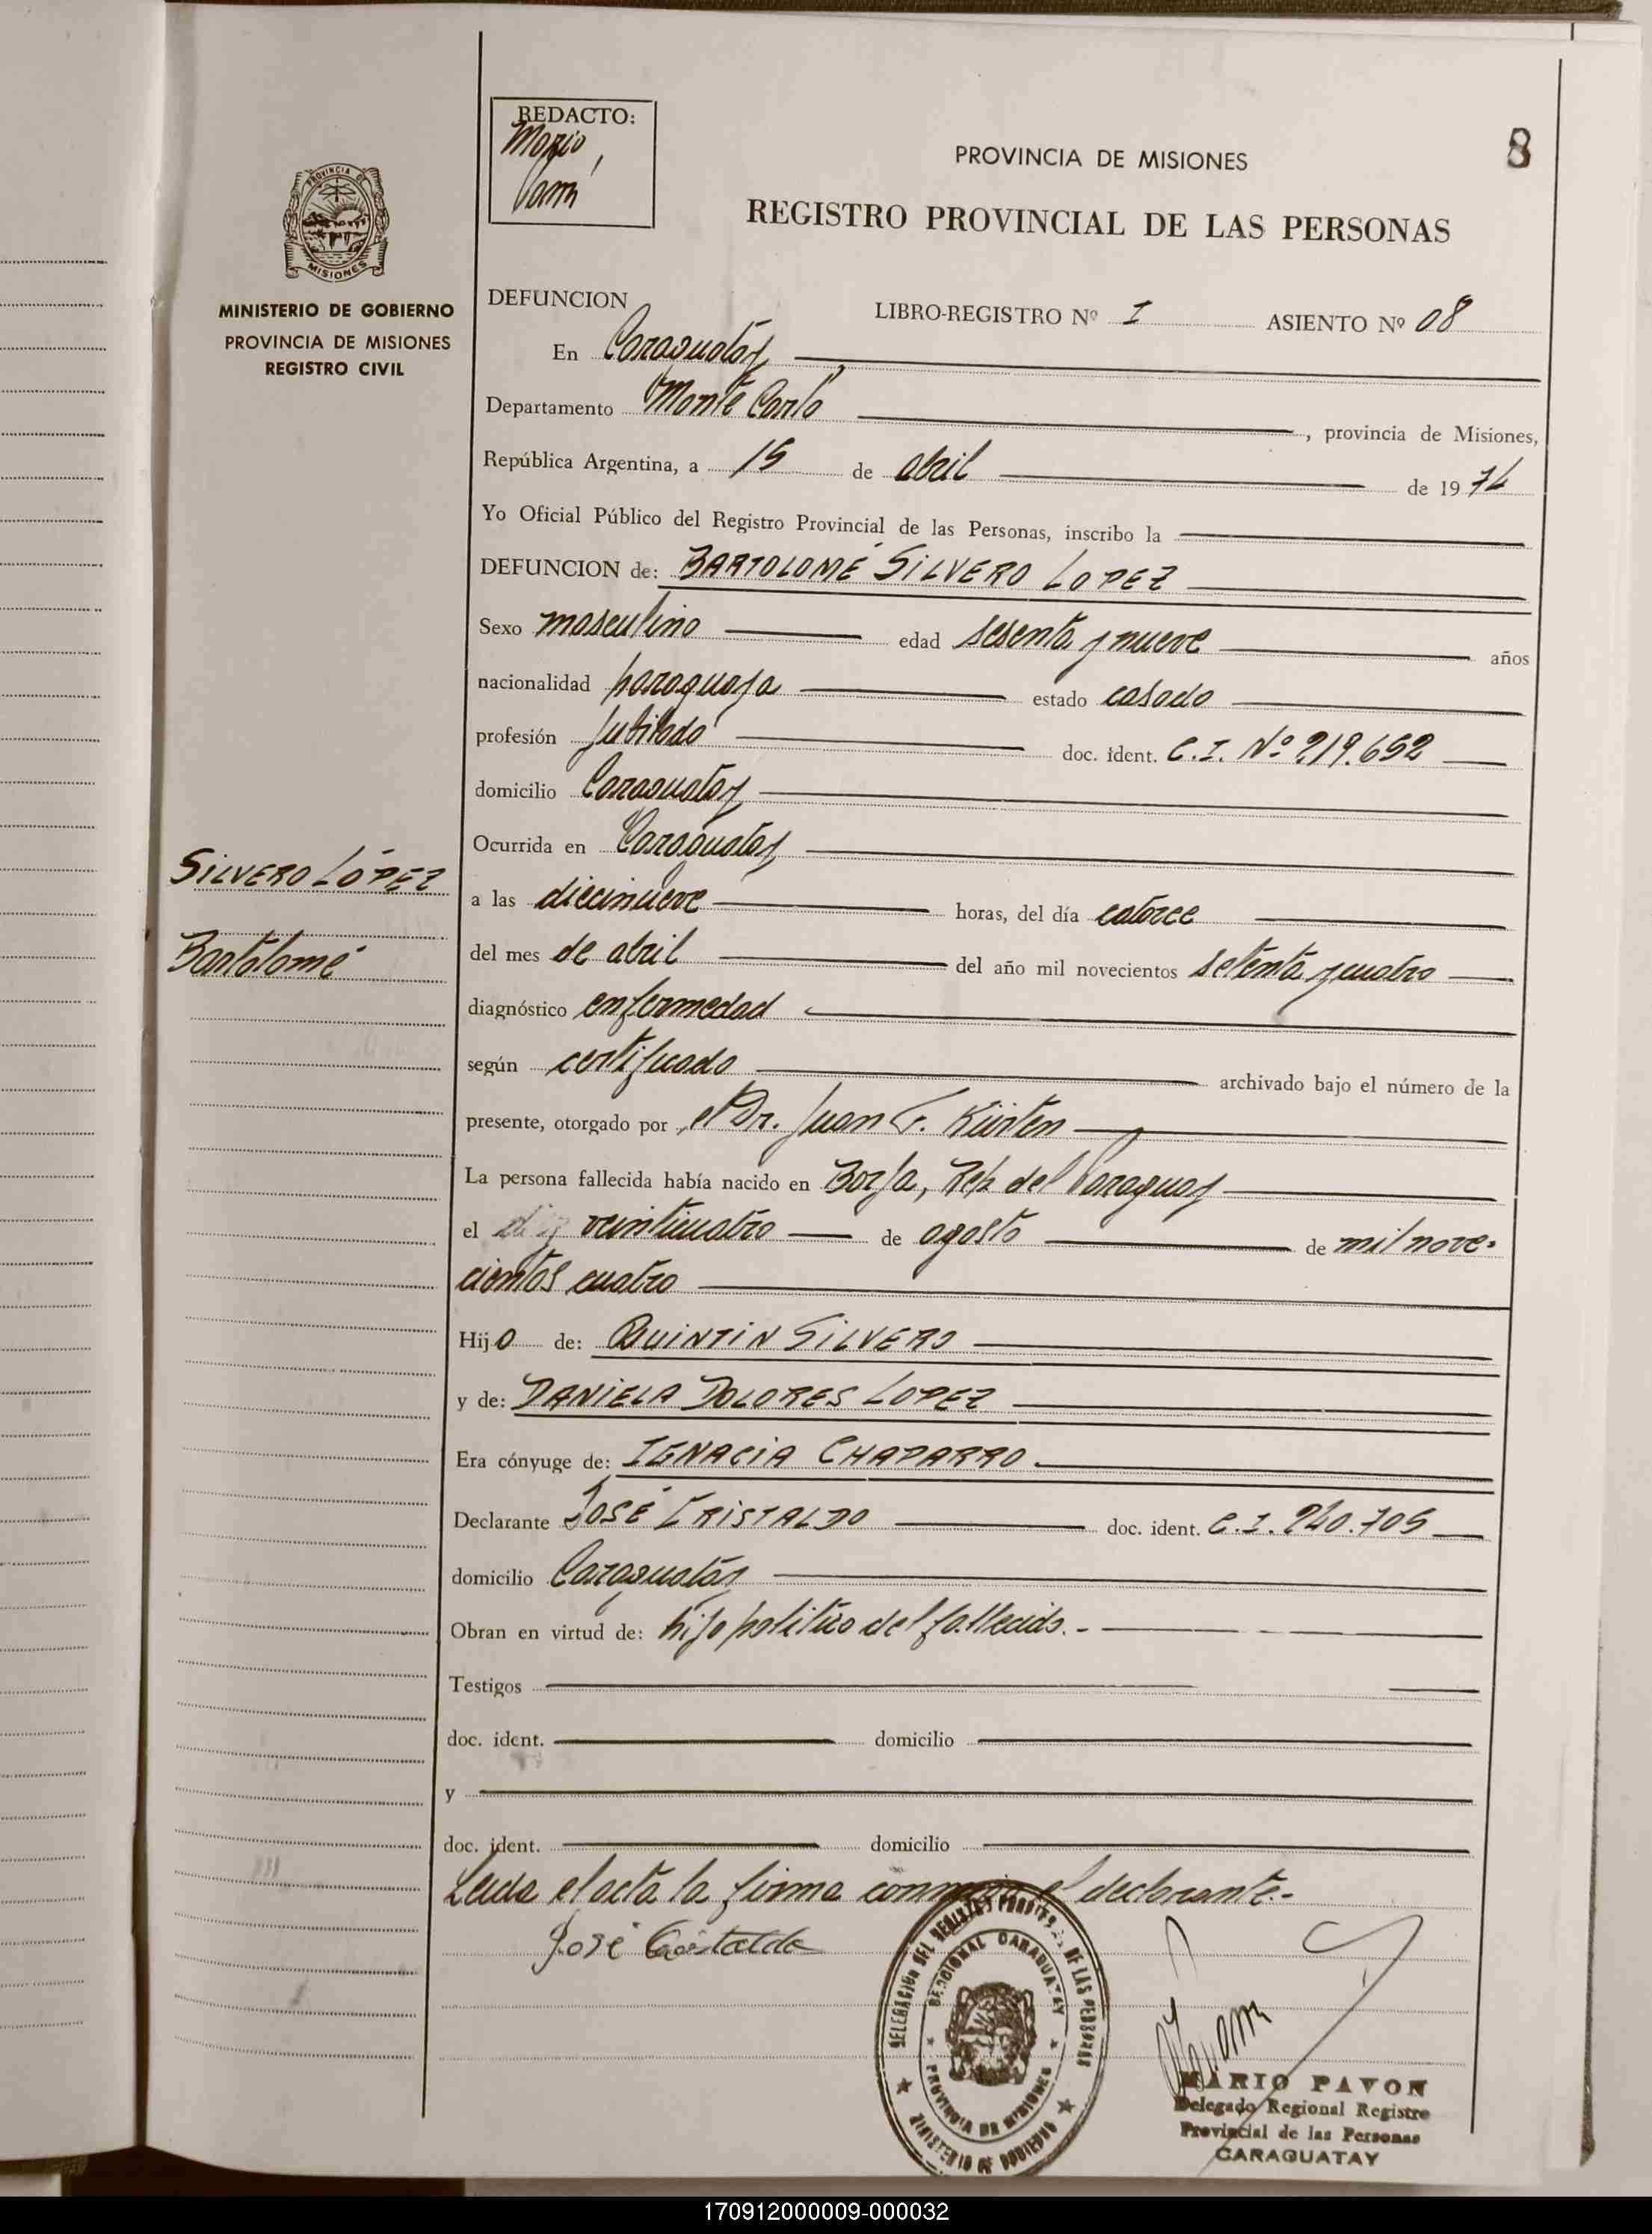 REDACTO:
Mario
PROVINCIA DE MISIONES
8
REGISTRO PROVINCIAL DE LAS PERSONAS
PROVINCIA DE
MISIONES
MINISTERIO DE GOBIERNO
PROVINCIA DE MISIONES
REGISTRO CIVIL
DEFUNCION
LIBRO-REGISTRO Nº I ASIENTO Nº 08
En Caraguatay
Departamento Monte Carlo, provincia de Misiones,
República Argentina, a 15 de abril de 1974
Yo Oficial Público del Registro Provincial de las Personas, inscribo la
DEFUNCION de: BARTOLOMÉ SILVERO LOPEZ
Sexo masculino edad sesenta y nueve años
nacionalidad paraguaya estado casado
profesión Jubilado doc. ident. C.I. Nº 219.652
domicilio Caraguatay
Ocurrida en Caraguatay
SILVERO LÓPEZ
Bartolomé
a las diecinueve horas, del día catorce
del mes de abril del año mil novecientos setenta y cuatro
diagnóstico enfermedad
según certificado archivado bajo el número de la
presente, otorgado por el Dr. Juan F. Kürten
La persona fallecida había nacido en Borja, Rep. del Paraguay
el veinticuatro de agosto de mil nove-
cientos cuatro
Hijo de: QUINTIN SILVERO
y de: DANIELA DOLORES LOPEZ
Era cónyuge de: IGNACIA CHAPARRO
Declarante JOSÉ CRISTALDO doc. ident. C.I. 240.705
domicilio Caraguatay
Obran en virtud de: hijo politico del fallecido.-
Testigos
doc. ident. domicilio
y
doc. ident. domicilio
Leida el acta la firma conmigo el declarante.-
José Cristaldo
DELEGACION DEL REGISTRO PROVINCIAL DE LAS PERSONAS
SECCIONAL CARAGUATAY
PROVINCIA DE MISIONES
MINISTERIO DE GOBIERNO
MARIO PAVON
Delegado Regional Registro
Provincial de las Personas
CARAGUATAY
170912000009-000032